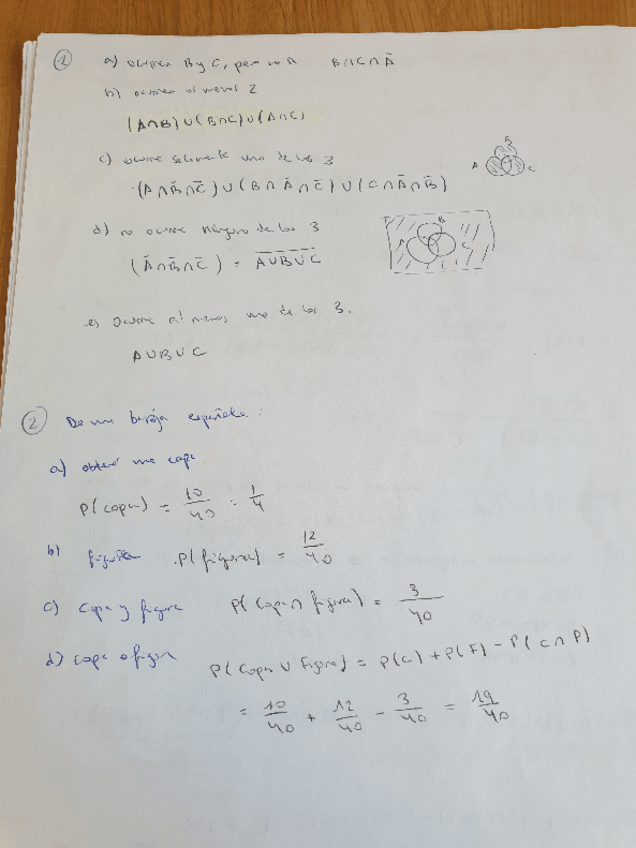 ① a) Ocurren B y C, pero no A B∩C∩Ā
b) ocurren al menos 2
(A∩B)∪(B∩C)∪(A∩C)
c) ocurre solamente uno de los 3
(A∩B̄∩C̄)∪(B∩Ā∩C̄)∪(C∩Ā∩B̄)
A B C
d) no ocurre ninguno de los 3
(Ā∩B̄∩C̄) = \overline{A∪B∪C}
A B C
e) Ocurre al menos uno de los 3.
A∪B∪C
② De una baraja española:
a) obtener una copa
P(copa) = 10/40 = 1/4
b) figura P(figura) = 12/40
c) Copa y figura P(copa ∩ figura) = 3/40
d) copa o figura P(Copa ∪ Figura) = P(C) + P(F) - P(C∩F)
= 10/40 + 12/40 - 3/40 = 19/40